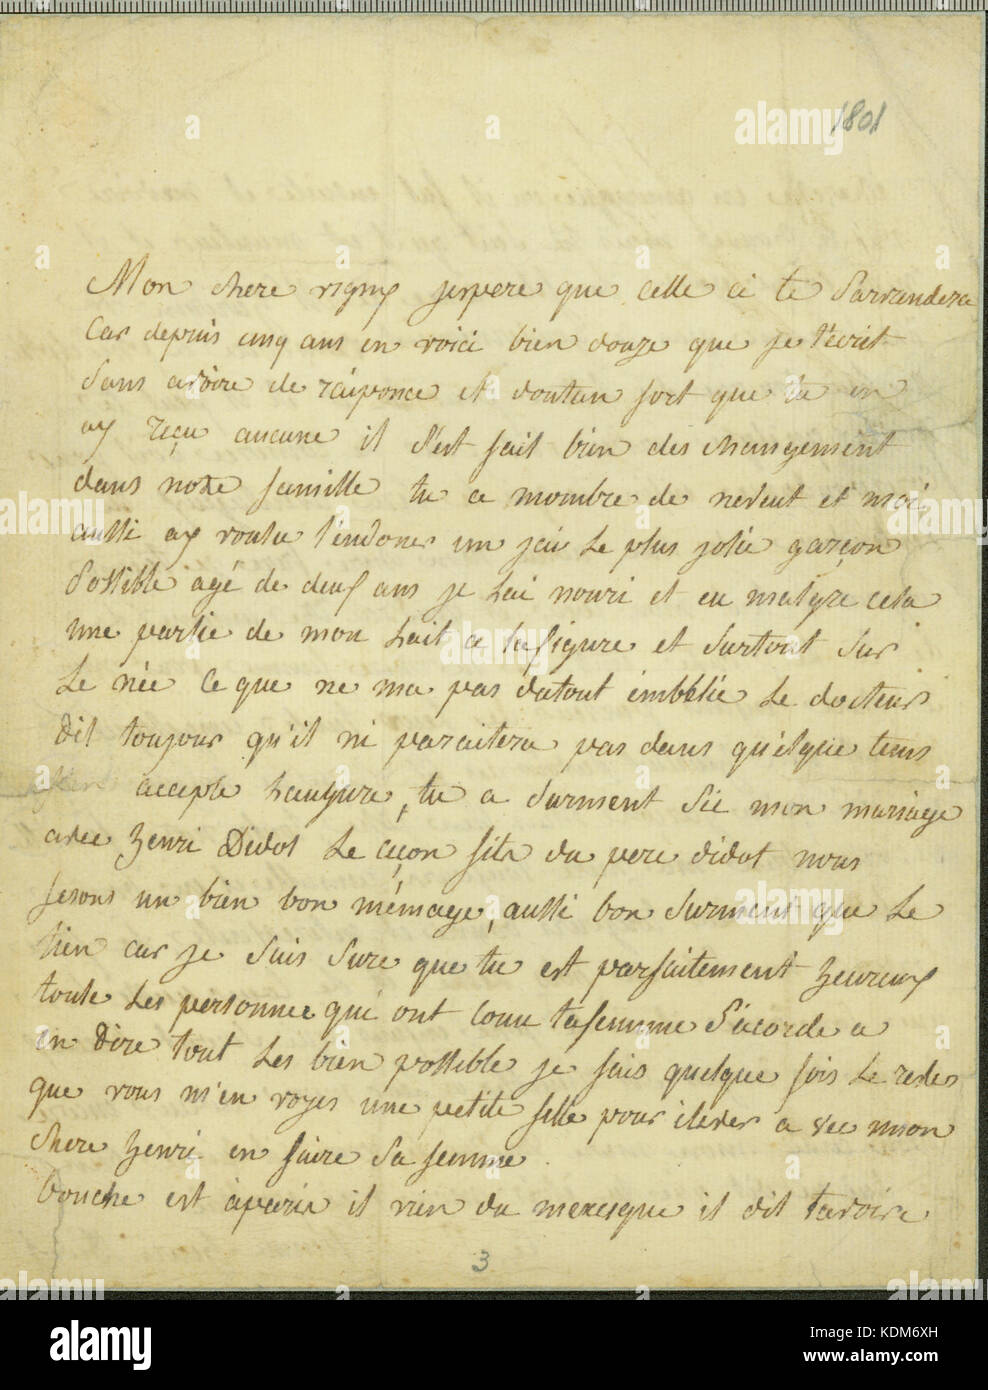 1801
Mon chere vigny jespere que celle ci te parrandera
Car depuis cinq ans en voici bien douze que je t'ecrit
sans avoire de réiponce et doutan fort que tu en
ay reçu aucune il s'est fait bien des changement
dans notre famille tu a nombre de neveut et moi
aussi ay voulu t'endoner un jai le plus jolie garçon
possible agé de deux ans je lai nouri et eu malgre cela
une partie de mon lait a la figure et surtout sur
Le née Ce que ne ma pas dutout embélie Le docteur
dit toujour qu'il ni paraitera pas dans quélque tems
accepte Laugure, tu a surment sue mon mariage
avec henri Didot Le segon fils du pere didot nous
fesons un bien bon ménage, aussi bon surment que Le
tien car je suis sure que tu est parfaitement heureux
toute Les personnee qui ont connu ta femme s'acorde a
en dire tout Les bien possible je fais quelque fois Le reves
que vous m'en voyes une petite fille pour élever a vec mon
chere henri en faire sa femme
bouche est a paris il vien du mexique il dit tavoire
3